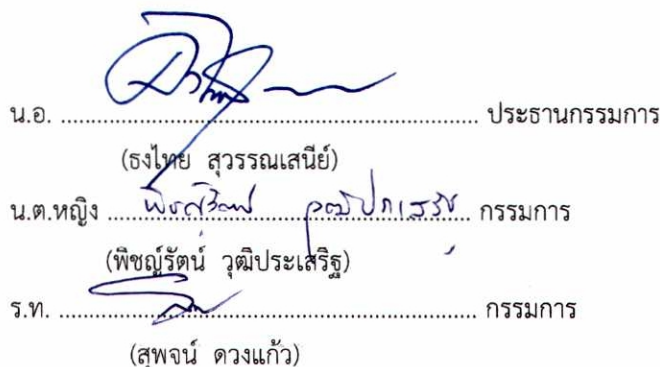 น.อ. ........................................ ประธานกรรมการ
(ธงไทย สุวรรณเสนีย์)
น.ต.หญิง พิชญ์รัตน์ วุฒิประเสริฐ กรรมการ
(พิชญ์รัตน์ วุฒิประเสริฐ)
ร.ท. ........................................ กรรมการ
(สุพจน์ ดวงแก้ว)